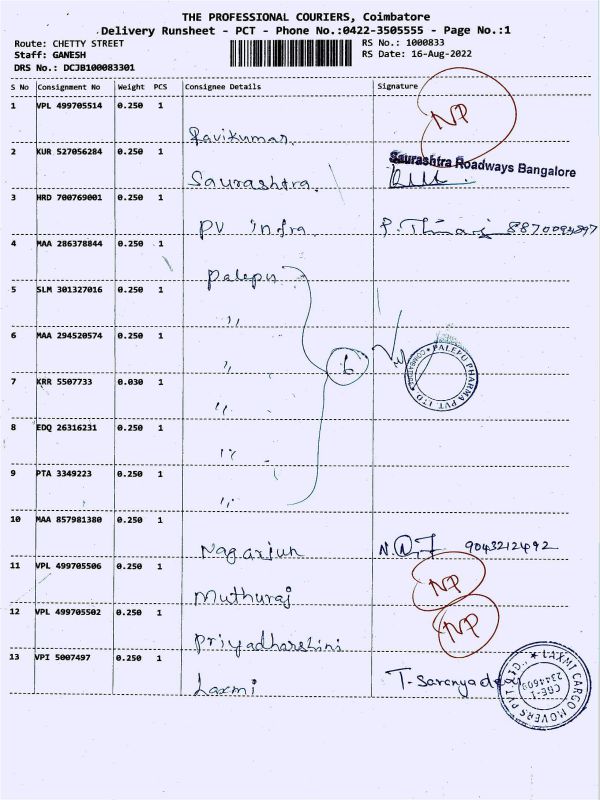 THE PROFESSIONAL COURIERS, Coimbatore
Delivery Runsheet - PCT - Phone No.:0422-3505555 - Page No.:1
Route: CHETTY STREET RS No.: 1000833
Staff: GANESH RS Date: 16-Aug-2022
DRS No.: DCJB100083301
S No Consignment No Weight PCS Consignee Details Signature
1 VPL 499705514 0.250 1 NP
Ravikumar
2 KUR 527056284 0.250 1 Saurashtra Roadways Bangalore
Saurashtra
3 HRD 700769001 0.250 1
PV Infra
4 MAA 286378844 0.250 1
Palepu
5 SLM 301327016 0.250 1
,,
6 MAA 294520574 0.250 1
,, 6 PALEPU PHARMA PVT. LTD. COIMBATORE
7 KRR 5507733 0.030 1
,,
8 EDQ 26316231 0.250 1
,,
9 PTA 3349223 0.250 1
,,
10 MAA 857981380 0.250 1
Nagarjun 9043212492
11 VPL 499705506 0.250 1 NP
Muthuraj
12 VPL 499705502 0.250 1 NP
Priyadharshini
13 VPI 5007497 0.250 1
Laxmi T. Saranyadevi LAXMI CARGO MOVERS PVT. LTD., CBE-1 2344609